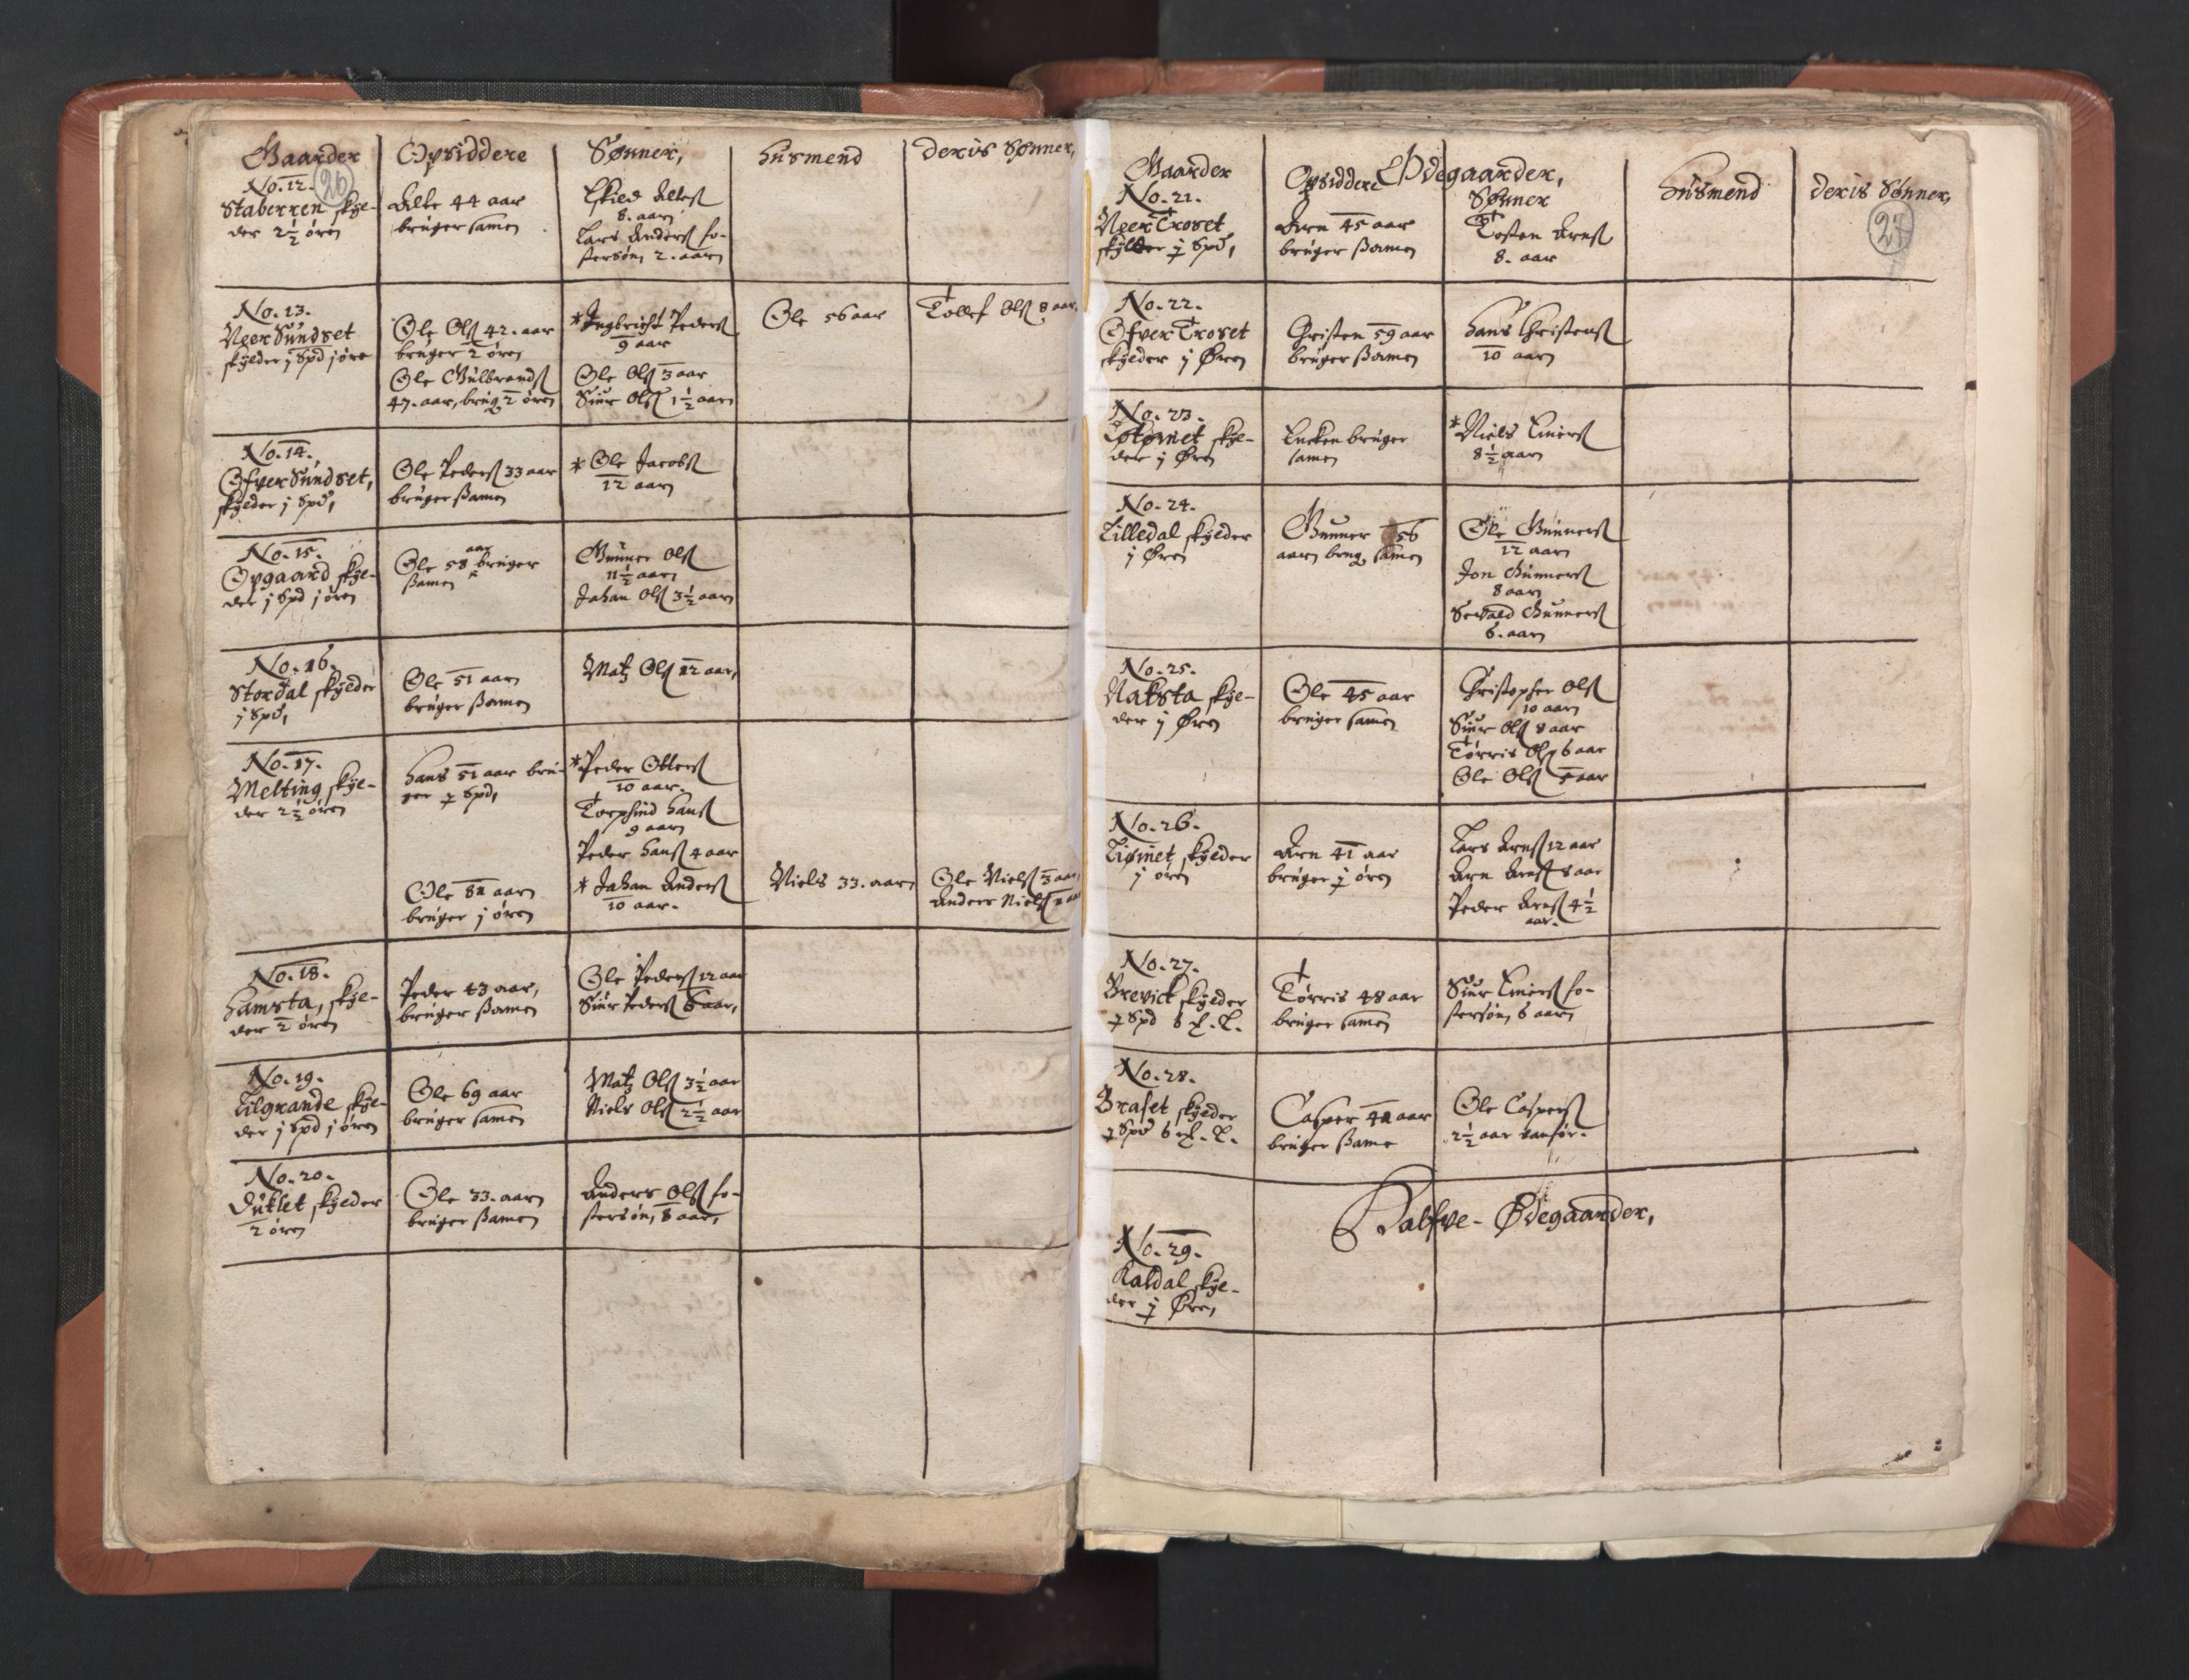 Gaarder Opsiddere Sønner, Husmend Deris Sønner,
26
No. 12.
Staberren skyl-
der 2 1/2 øren
Atle 44 aar
bruger samen
Eskild Atlesß
8. aar
Lars Andersß fo-
stersøn, 2. aar
No. 13.
Neer Sundset
skylder j Spd j øre
Ole Olsß 42. aar
bruger 2 øren
Ole Gulbrandsß
47. aar, brug 2 øren
* Ingbricht Pedersß
9 aar
Ole Olsß 3 aar
Siur Olsß 1 1/2 aar
Ole 56 aar
Tollef Olsß 8 aar,
No. 14.
Ofver Sundset,
skylder j Spd,
Ole Pedersß 33 aar
bruger samen
* Ole Jacobsß
12 aar
No. 15.
Opgaard skyl-
der j Spd j øren
aar
Ole 58 bruger
samen
Gunner Olsß
11 1/2 aar
Johan Olsß 3 1/2 aar
No. 16.
Stordal skylder
j Spd,
Ole 51 aar
bruger samen
Matz Olsß 12 aar,
No. 17.
Melting skyl-
der 2 1/2 øren
Hans 51 aar bru-
ger Spd,
* Peder Ottersß
10 aar.
Torphind Hansß
9 aar
Peder Hansß 4 aar
Ole aar
bruger j øren
* Johan Andersß
10 aar.
Niels 33. aar
Ole Nielsß 3 aar,
Anders Nielsß
No. 18.
Hamsta, skyl-
der 2 øren
Peder 43 aar,
bruger samen
Ole Pedersß 12 aar
Siur Pedersß 6 aar,
No. 19.
Tilgrande skyl-
der j Spd j øren
Ole 69 aar
bruger samen
Matz Olsß 3 1/2 aar
Niels Olsß 2 1/2 aar
No. 20.
Duklet skylder
2 øren
Ole 33. aar
bruger samen
Anders Olsß fo-
stersøn, 8 aar,
Ødegaarder,
Gaarder Opsiddere Sønner Husmend Deris Sønner,
27
No. 21.
Neer Troset
skylder Spd,
Arn 45 aar
bruger samen
Tosten Arnsß
8. aar
No. 22.
Ofver Troset
skylder j Øren
Christen 59 aar
bruger samen
Hans Christensß
10 aar
No. 23.
skyl-
der j Øren
Encken bruger
samen
* Niels Einersß
8 1/2 aar
No. 24.
Lilledal skylder
j Øren
Gunner 56
aar brug samen
Ole Gunnersß
12 aar
Jon Gunnersß
8 aar
Sevald Gunnersß
6. aar
No. 25.
Naksta skyl-
der j Øren
Ole 45 aar
bruger samen
Christopher Olsß
10 aar
Siur Olsß 8 aar
Tørris Olsß 6 aar
Ole Olsß aar
No. 26.
skylder
j øren
Arn 41 aar
bruger j øren
Lars Arnsß 12 aar
Arn Arnsß 8 aar
Peder Arnsß 4 1/2
aar.
No. 27.
Brevick skylder
Spd 6
Tørris 48 aar
bruger samen
Siur Einersß fo-
stersøn, 6 aar
No. 28.
Braset skylder
Spd 6
Casper aar
bruger same
Ole Caspersß
2 1/2 aar vanfør.
Halfve-Ødegaarder,
No. 29.
Kaldal skyl-
der Øre,